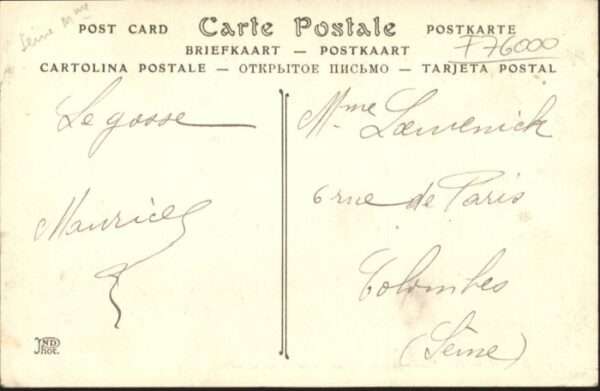 Seine Mme
F76000
POST CARD Carte Postale POSTKARTE
BRIEFKAART — POSTKAART
CARTOLINA POSTALE — ОТКРЫТОЕ ПИСЬМО — TARJETA POSTAL
Le gosse
Maurice
Mme Lœwenick
6 rue de Paris
Colombes
(Seine)
ND
Phot.